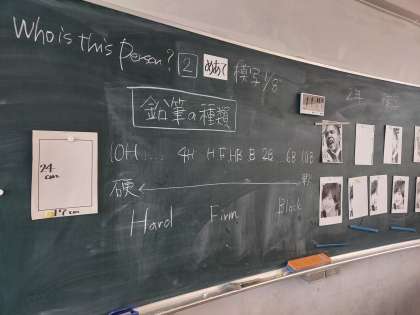 Who is this Person? 2 めあて 模写 1/8
2年
鉛筆の種類
10H ... 4H H F HB B 2B 6B 10B
硬 軟
Hard Firm Black
24 cm
17 cm